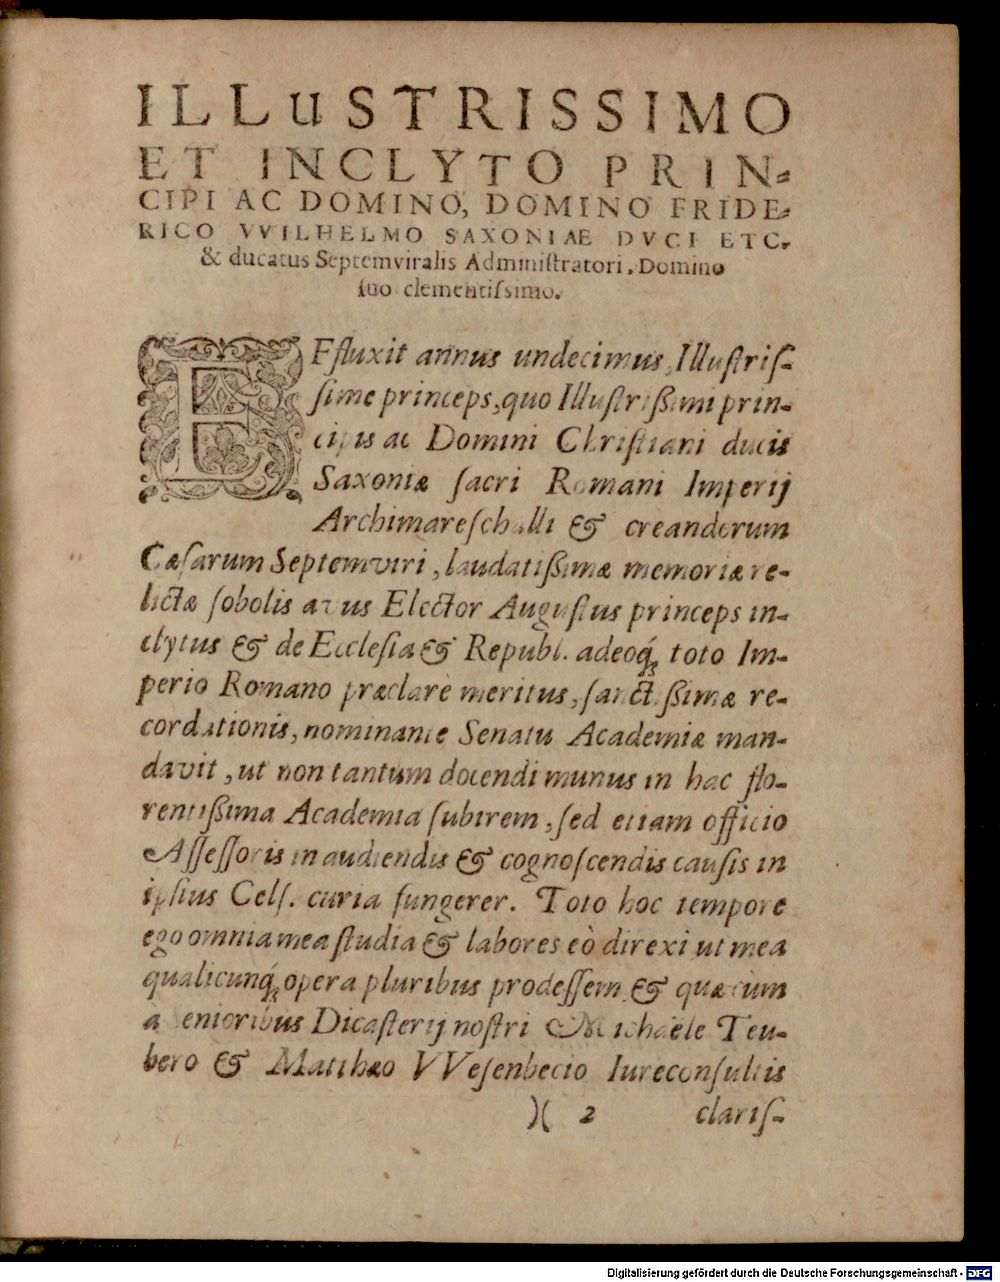 ILLuSTRISSIMO
ET INCLYTO PRIN-
CIPI AC DOMINO, DOMINO FRIDE-
RICO VVILHELMO SAXONIAE DVCI ETC.
& ducatus Septemviralis Administratori, Domino
suo clementissimo.
EFfluxit annus undecimus, Illustriſ-
ſime princeps, quo Illuſtrißimi prin-
cipis ac Domini Chriſtiani ducis
Saxoniæ ſacri Romani Imperij
Archimareſchalli & creandorum
Cæſarum Septemviri, laudatißimæ memoriæ re-
lictæ ſobolis avus Elector Auguſtus princeps in-
clytus & de Eccleſia & Republ. adeoq́; toto Im-
perio Romano præclarè meritus, ſanctißimæ re-
cordationis, nominante Senatu Academiæ man-
davit, ut non tantum docendi munus in hac flo-
rentißima Academia ſubirem, ſed etiam officio
Aſſeſſoris in audiendis & cognoſcendis cauſis in
ipſius Celſ. curia fungerer. Toto hoc tempore
ego omnia mea ſtudia & labores eò direxi ut mea
qualicunq́; opera pluribus prodeſſem, & quæ cum
a ſenioribus Dicaſterij noſtri Michaële Teu-
bero & Matthæo VVeſenbecio Iureconſultis
)( 2 clariſ-
Digitalisierung gefördert durch die Deutsche Forschungsgemeinschaft - DFG